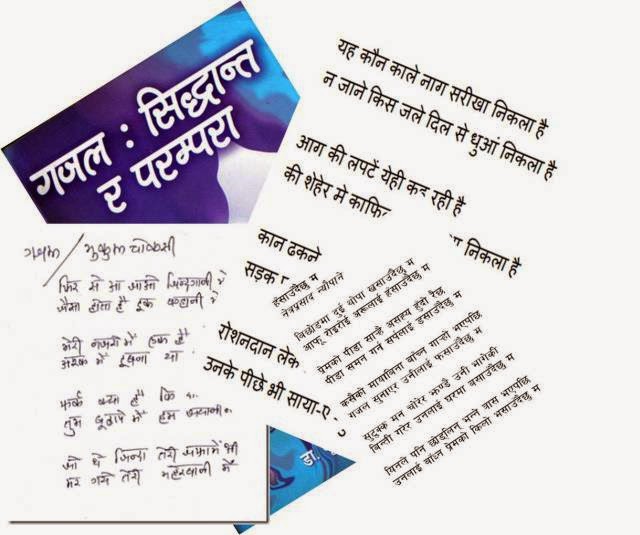 गजल : सिद्धान्त
र परम्परा
यह कौन काले नाग सरीखा निकला है
न जाने किस जले दिल से धुआं निकला है
आग की लपटें येही कह रही है
की शेहेर मे काफि
निकला है
कान ढकने
सड़क
रोशनदान लेक
उनके पीछे भी साया-ए
गझल / मुकुल चोकसी
फिर से आ जाओ जिन्दगानी में
जैसा होता है इक कहानी में
मेरी नजरों में
अश्क में डूबना था
फर्क क्या है कि
तुम बूढापे में हम जवानी
जो थे जिन्दा तेरी जफ़ा में भी
मर गये तेरी महेरबानी में
हंसाउदैछु म
नेत्रप्रसाद न्यौपाने
बिछोडमा दुई थोपा खसाउदैछु म
आफू रोइरोई अरूलाई हंसाउदैछु म
प्रेमको पीडा सार्है असाह्य हुंदो रैछ
पीडा समन गर्न सर्पलाई डसाउदैछु म
कसैको मायाबिना बांच्न गार्हो भाएपछि
गजल सुनाएर उनीलाई फसाउदैछु म
सुटुक्क मन चोरेर भाग्दै उनी भागेकी
बिन्ती गरेर उनलाई घरमा बसाउदैछु म
यिनले पनि छोड्लिन् भन्ने त्रास भएपछि
उनलाई बांध्न प्रेमको किला भसाउदैछु म
डा.